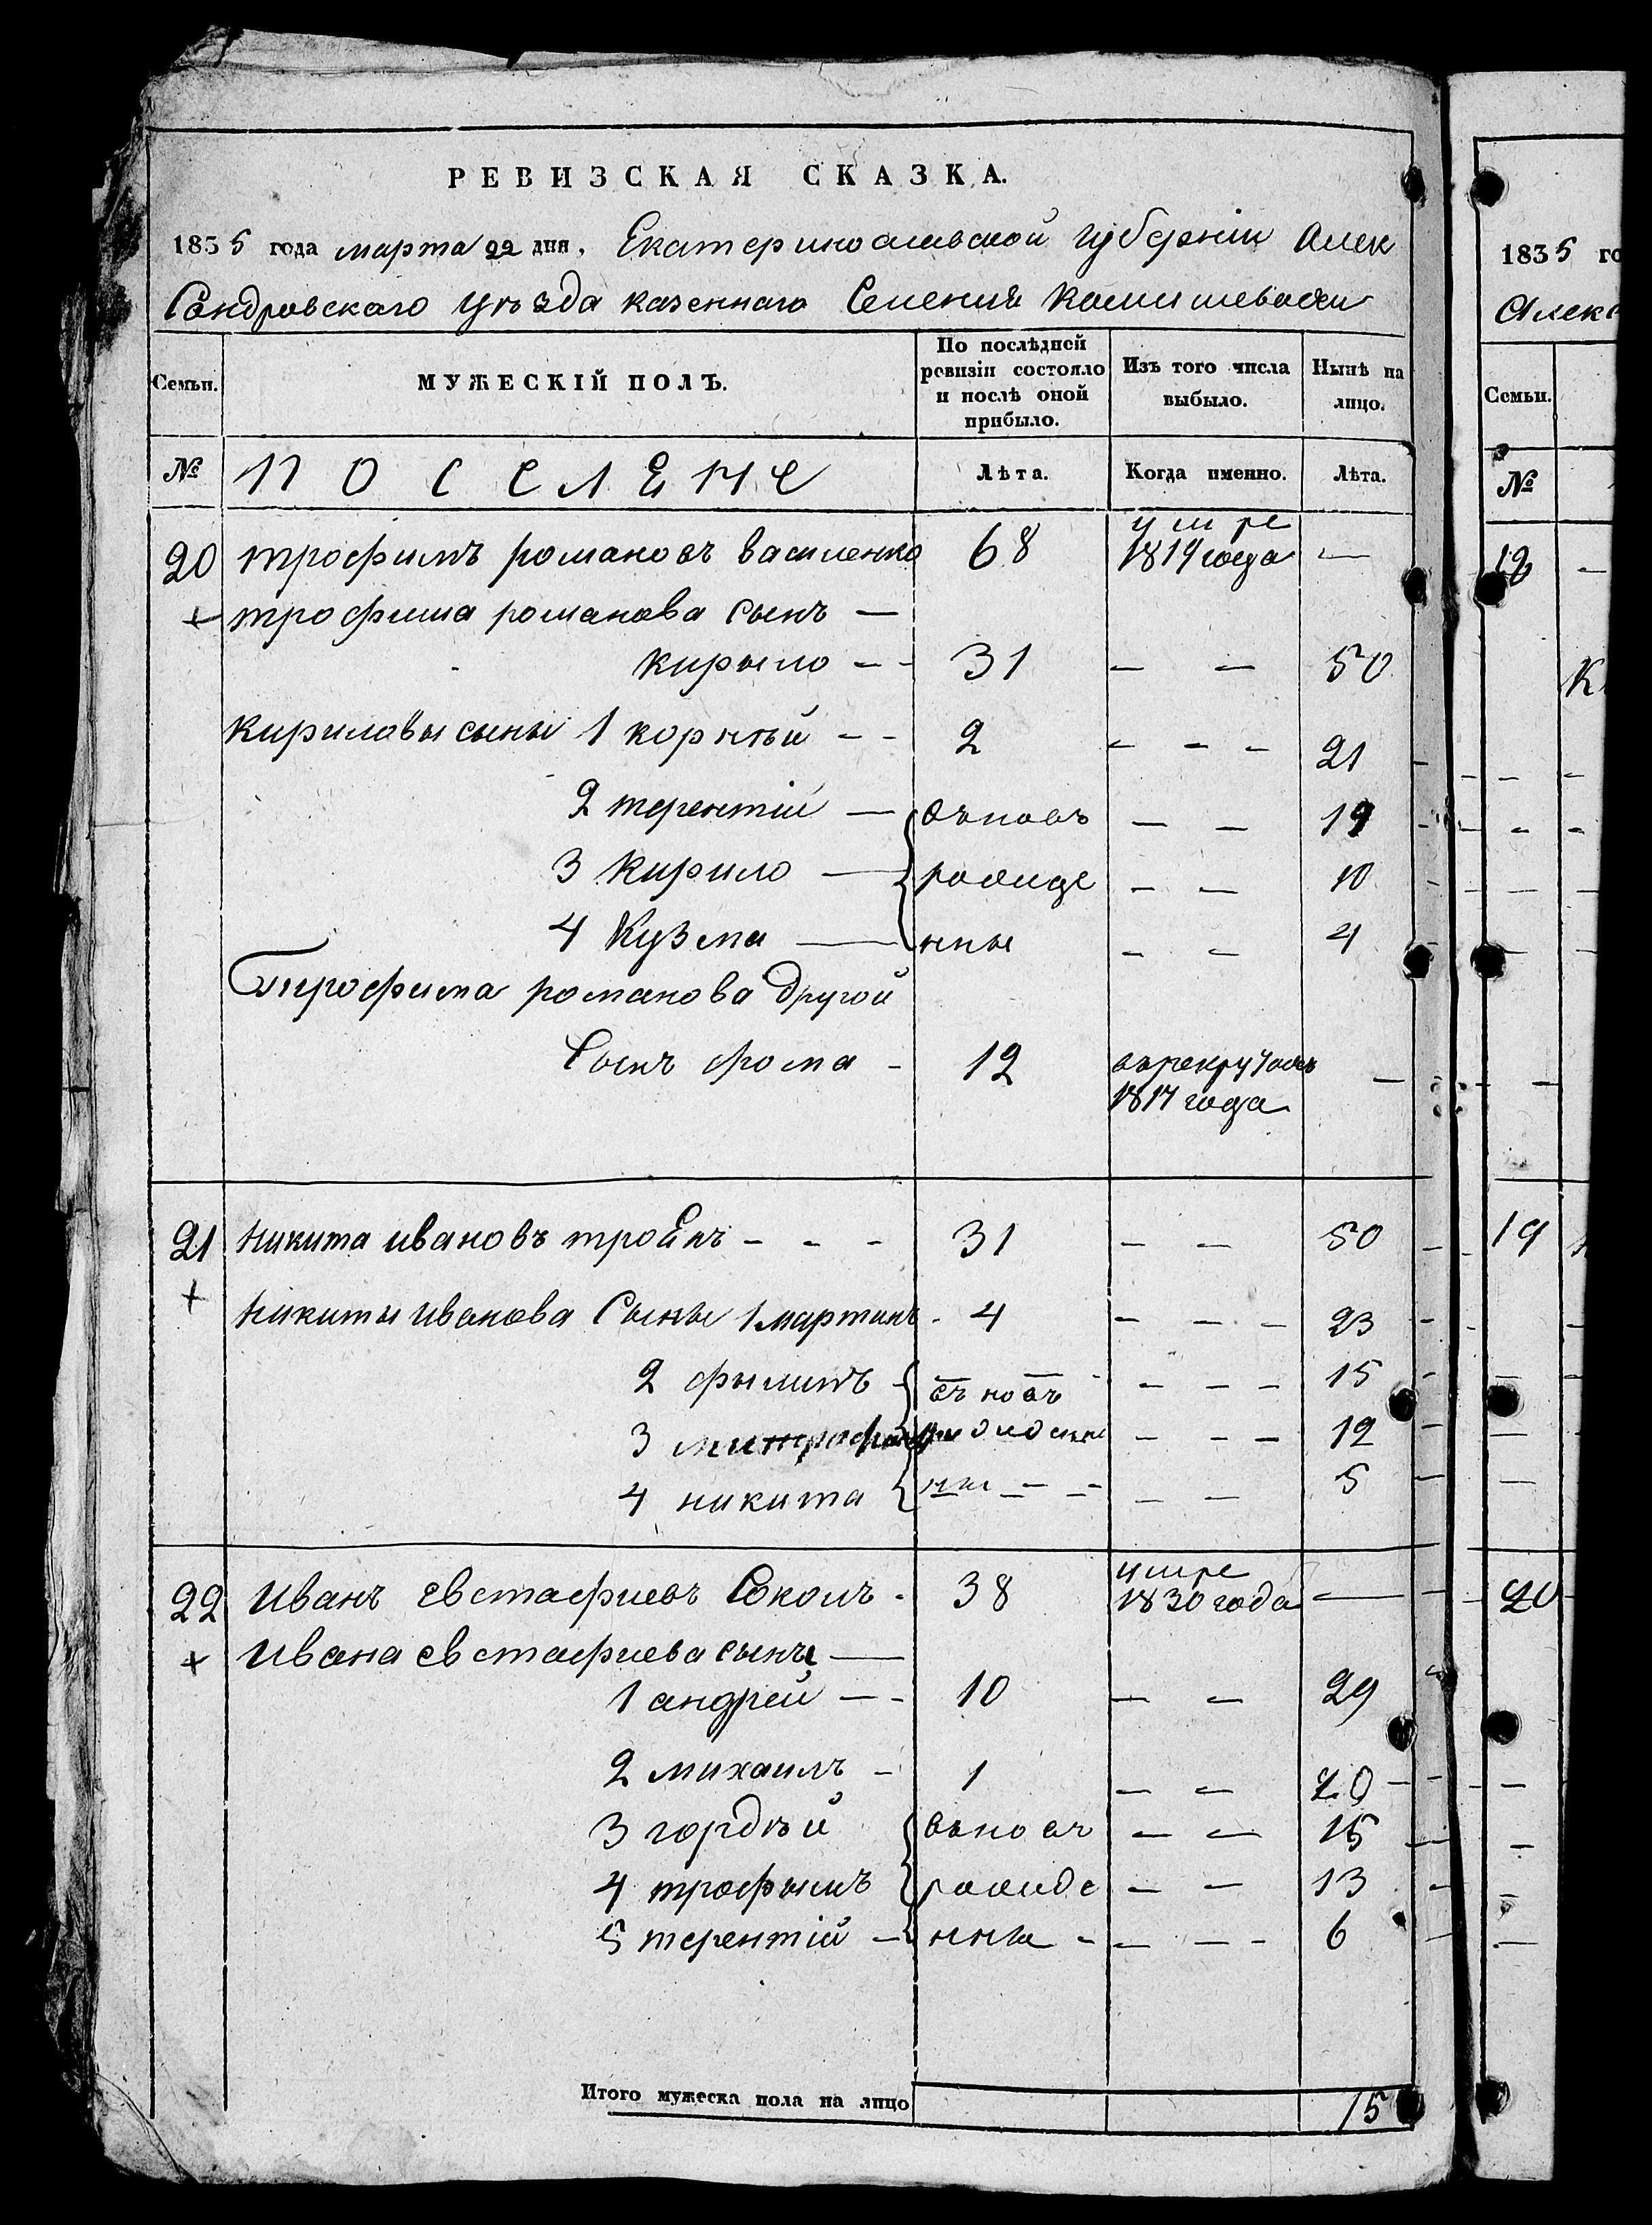 РЕВИЗСКАЯ СКАЗКА.
1835 года марта 22 дня, Екатеринославской губерніи Алек
Сандровского уѣзда казенного Селенія Камишевахи
Семьи. МУЖЕСКІЙ ПОЛЪ. По послѣдней ревизіи состояло и послѣ оной прибыло. Изъ того числа выбыло. Нынѣ на лицо.
№ ПОССЕЛЕНЕ Лѣта. Когда именно. Лѣта.
20 трофимъ романовъ василенко 68 умре 1819 года —
+ трофима романова сынъ —
кирыло — - 31 — — 50
кириловы сыны 1 корнѣй - - 2 - - - 21
2 терентій — вновь — — 19
3 Кирило — рожде — — 10
4 Кузма — нны — — 4
Трофима романова другой
Сынъ фома - 12 въ рекрутахъ 1817 года —
21 никита ивановъ троянъ - - - 31 — — 50
+ Никиты иванова Сыны 1 мартинъ - 4 - - - 23
2 филипъ - вновь - - - 15
3 митрофанъ - - - 12
4 никита нны — — 5
22 Иванъ евстафиевъ Соколъ - 38 умре 1830 года —
+ Ивана евстафиева сыны —
1 андрей — - 10 — — 29
2 михаилъ - 1 — — 20
3 гордѣй вновь — — 15
4 трофымъ рожде — — 13
5 терентій — нны - - — - 6
Итого мужеска пола на лицо 15
1835 го
Алекс
Семьи.
№
18
К
19
20